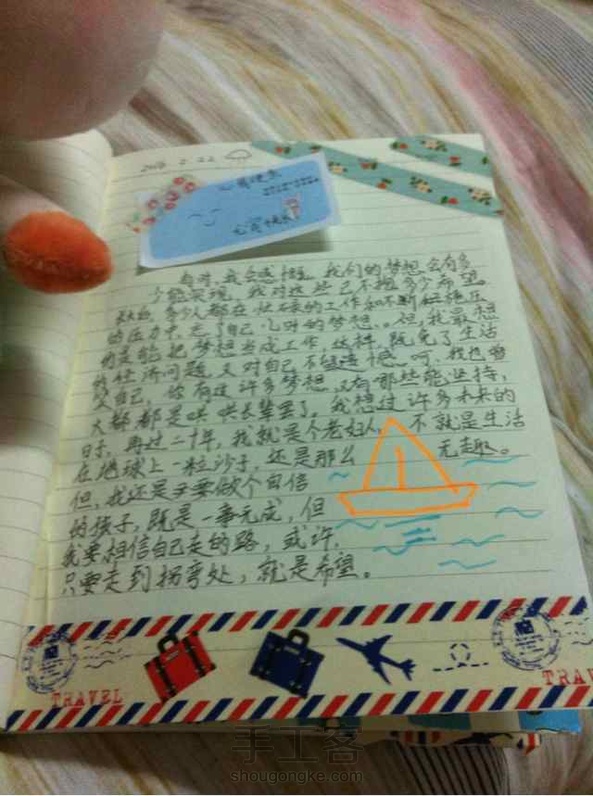 心有快乐
有时,我会感慨,我们的梦想会有多
少能实现,我对这些已不抱多少希望。
多少人都在忙碌的工作和不断
的压力中,忘了自己儿时的梦想。但,我最想
的是能把梦想当成工作,这样,既免了生活
的经济问题,又对自己不留遗憾。呵,我也曾
自己,你有过许多梦想,又有哪些能坚持,
大都都是哄哄长辈罢了。我想过许多未来的
日子,再过二十年,我就是个老妇人,不就是生活
在地球上一粒沙子,还是那么 无趣。
但,我还是要做个自信
的孩子,既是一事无成,但
我要相信自己走的路,或许,
只要走到拐弯处,就是希望。
TRAVEL
TRAV
手工客
shougongke.com